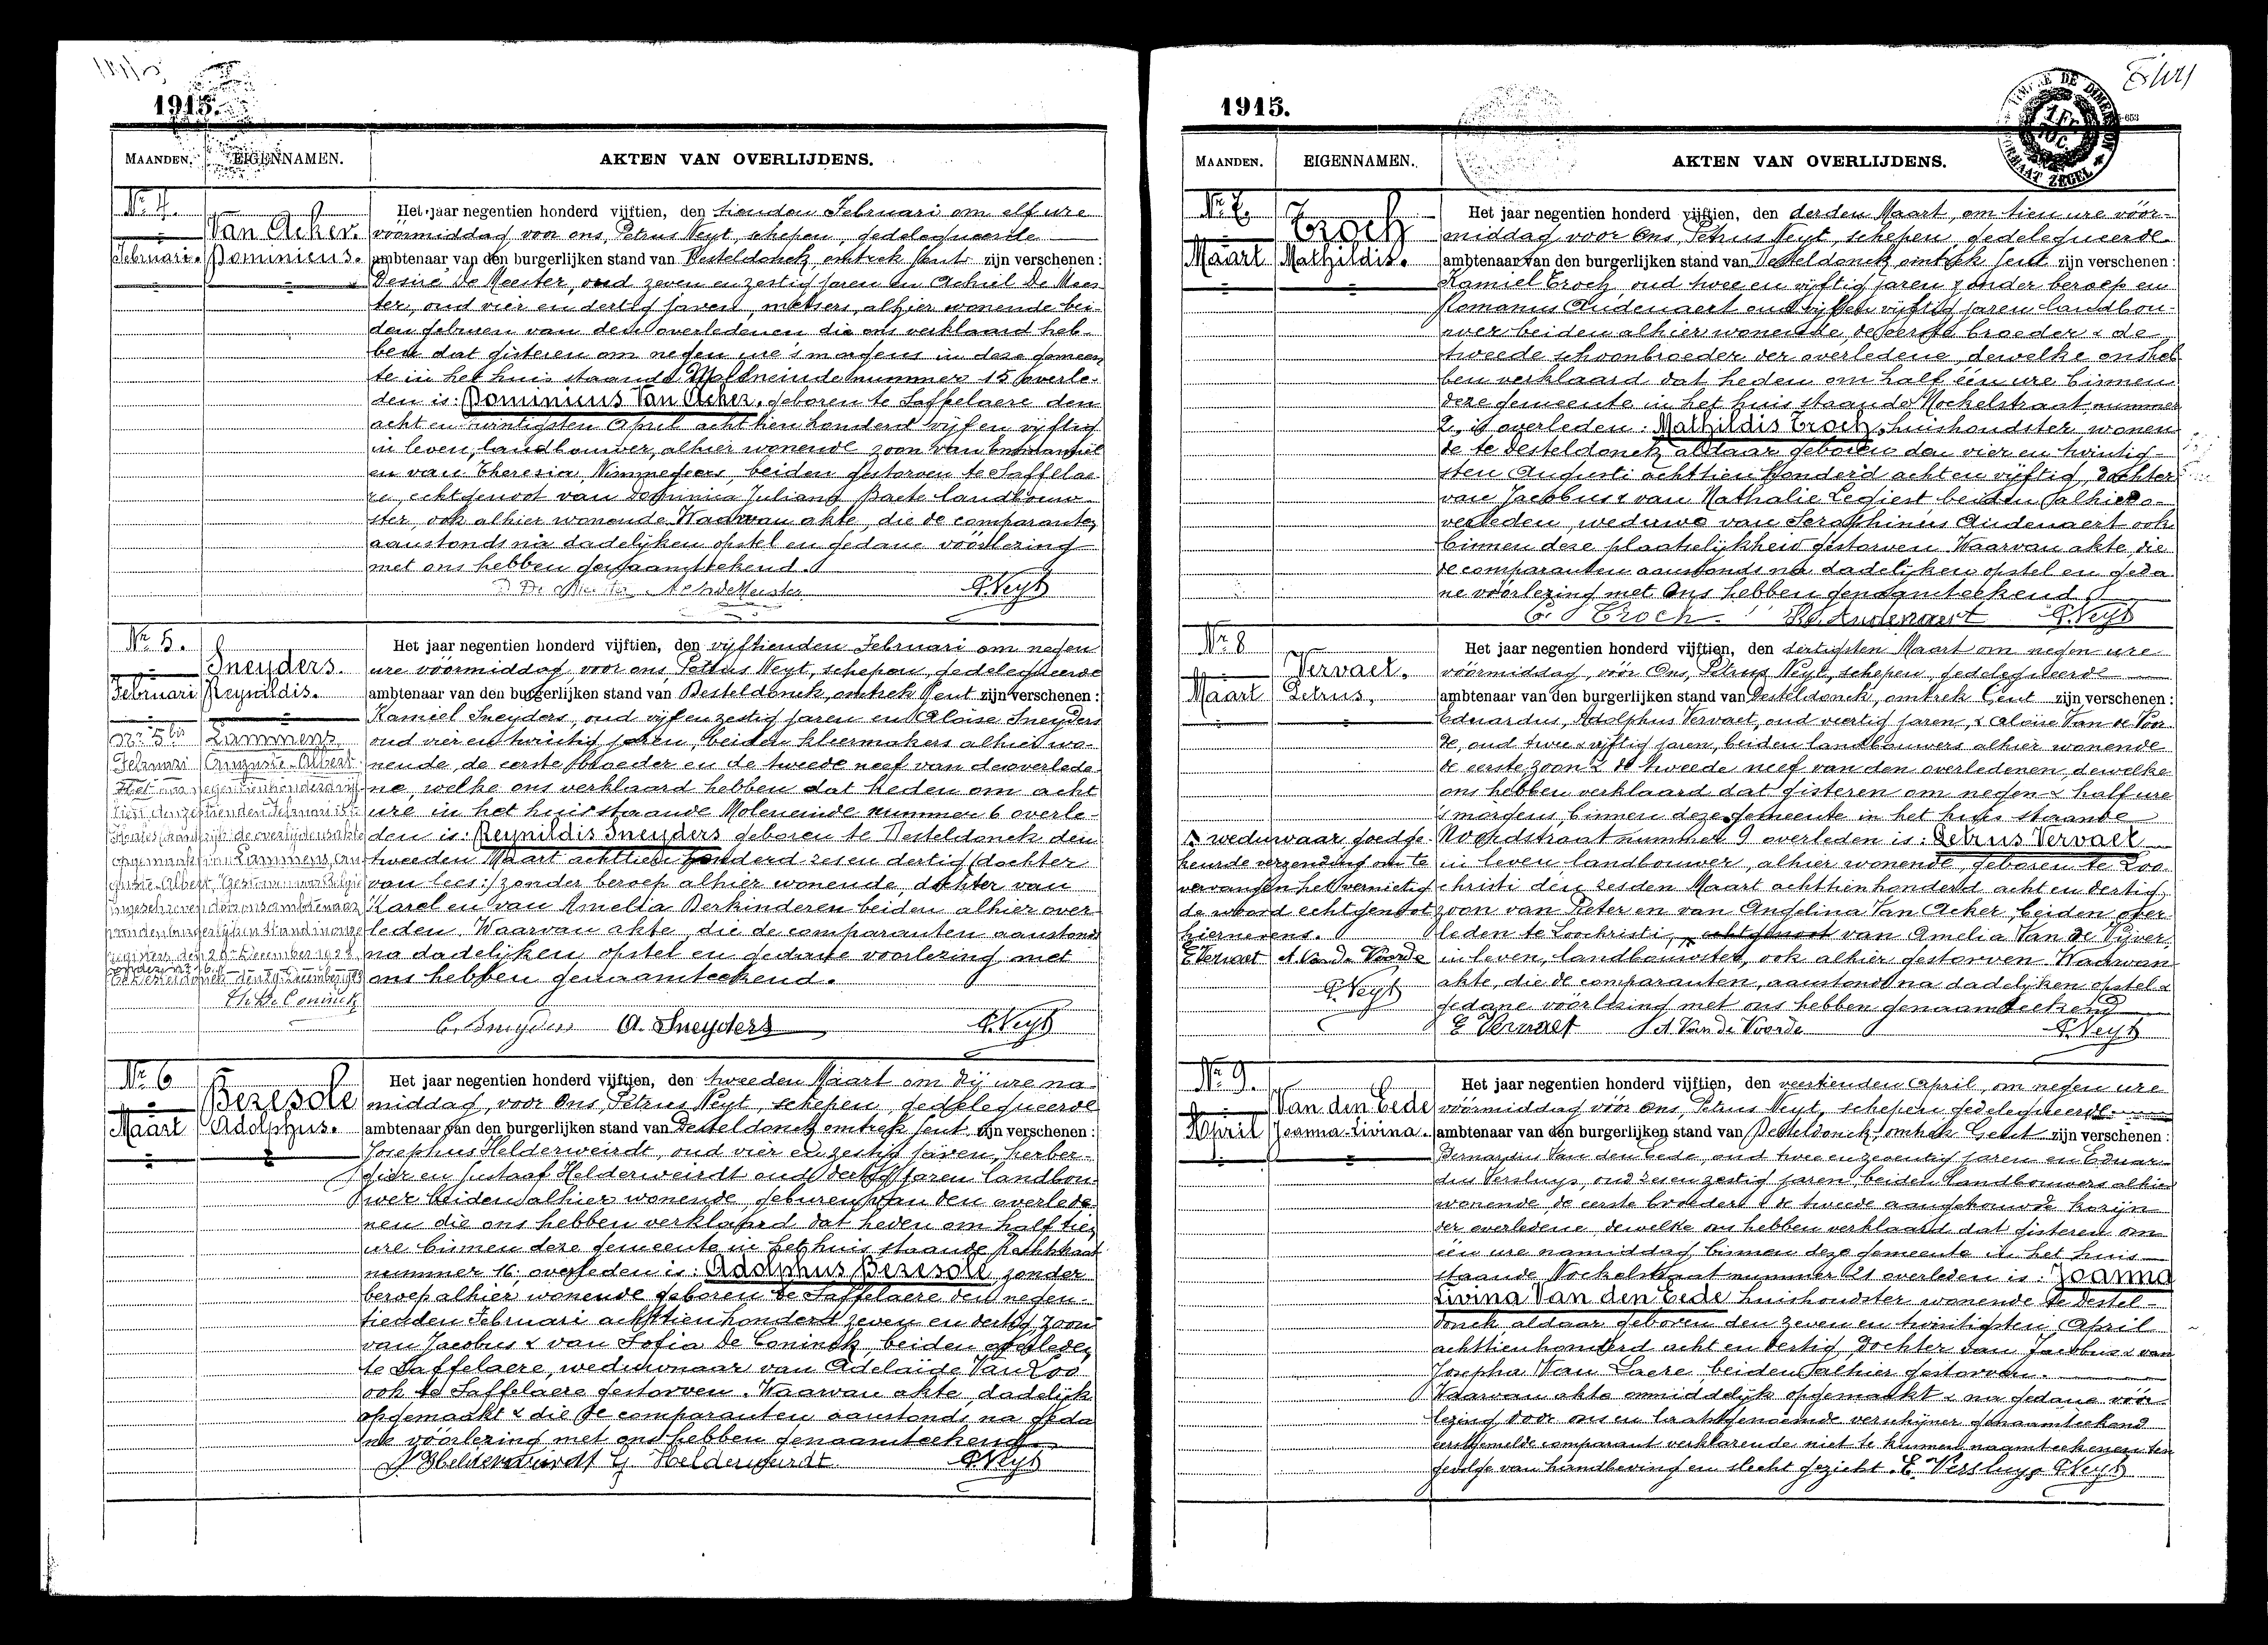 1915.
MAANDEN. EIGENNAMEN. AKTEN VAN OVERLIJDENS.
Nr. 4.
Februari.
Van Acker.
Dominicus.
Het jaar negentien honderd vijftien, den tienden Februari om elf ure
voormiddag voor ons, Petrus Neyt, schepen, gedelegueerde
ambtenaar van den burgerlijken stand van Desteldonck, omtrek Gent zijn verschenen :
Desiré De Meester, oud zeven en zestig jaren en Achiel De Mees-
ter, oud vier en dertig jaren, metsers, alhier wonende bei-
den geburen van den overledenen die ons verklaard heb-
ben dat gisteren om negen ure 's morgens in deze gemeen
te in het huis staande nummer 15 overle-
den is: Dominicus Van Acker, geboren te Saffelaere den
acht en twintigsten April acht tien honderd vijf en vijftig
in leven, landbouwer, alhier wonende zoon van Emmanuel
en van Theresia Nimmegeers, beiden gestorven te Saffelae-
re, echtgenoot van Dominica Juliana Baete landbouw-
ster, ook alhier wonende. Waarvan akte, die de comparanten
aanstonds na dadelijken opstel en gedane voorlezing
met ons hebben genaamteekend.
P. Neyt
Nr. 5.
Februari
Sneyders.
Reynildis.
Het jaar negentien honderd vijftien, den vijftienden Februari om negen
ure voormiddag, voor ons, Petrus Neyt, schepen, gedelegueerde
ambtenaar van den burgerlijken stand van Desteldonck, omtrek Gent zijn verschenen :
Kamiel Sneyders, oud vijf en zestig jaren en Aloise Sneyders
oud vier en twintig jaren, beiden kleermakers alhier wo-
nende, de eerste broeder en de tweede neef van de overlede-
ne, welke ons verklaard hebben dat heden om acht
ure in het huis staande Moleneinde nummer 6 overle-
den is: Reynildis Sneyders geboren te Desteldonck den
tweeden Maart achttien honderd zes en dertig (dochter
van lees:) zonder beroep alhier wonende, dochter van
Karel en van Amelia Berkinderen beiden alhier over-
leden. Waarvan akte, die de comparanten aanstonds
na dadelijken opstel en gedane voorlezing met
ons hebben genaamteekend.
Nr. 5bis
Februari
Lammens
Auguste-Albert
Th. De Coninck
C. Sneyders A. Sneyders P. Neyt
Nr. 6
Maart
Bezesole
Adolphus.
Het jaar negentien honderd vijftien, den tweeden Maart om drij ure na-
middag, voor Ons, Petrus Neyt, schepen, gedelegueerde
ambtenaar van den burgerlijken stand van Desteldonck omtrek Gent zijn verschenen :
Josephus Helderweirdt, oud vier en zestig jaren, herber-
gier en Gustaaf Helderweirdt oud dertig jaren landbou-
wer beiden alhier wonende, geburen van den overlede-
nen die ons hebben verklaard dat heden om half tien
ure binnen deze gemeente in het huis staande
nummer 16, overleden is: Adolphus Bezesole, zonder
beroep alhier wonende geboren te Saffelaere den negen-
tienden Februari achttien honderd zeven en dertig, zoon
van Jacobus & van Sofia De Coninck, beiden overleden
te Saffelaere, weduwnaar van Adelaïde Van Loo
ook te Saffelaere gestorven. Waarvan akte dadelijk
opgemaakt & die de comparanten aanstonds na geda
ne voorlezing met ons hebben genaamteekend.
J. Helderweirdt G. Helderweirdt P. Neyt
1915.
MAANDEN. EIGENNAMEN. AKTEN VAN OVERLIJDENS.
Nr. 7.
Maart
Croch
Mathildis.
Het jaar negentien honderd vijftien, den derden Maart, om tien ure voor-
middag voor Ons, Petrus Neyt, schepen, gedelegueerde
ambtenaar van den burgerlijken stand van Desteldonck, omtrek Gent zijn verschenen :
Kamiel Croch, oud twee en vijftig jaren zonder beroep en
Romanus Audenaert oud vijf en vijftig jaren landbou-
wer beiden alhier wonende, de eerste broeder & de
tweede schoonbroeder der overledene, dewelke ons heb
ben verklaard dat heden om half één ure binnen
deze gemeente in het huis staande Nockelstraat nummer
2, is overleden: Mathildis Croch, huishoudster wonen
de te Desteldonck aldaar geboren den vier en twintig-
sten Augusti achttien honderd acht en vijftig, dochter
van Jacobus & van Nathalie Legiest beiden alhier o-
verleden, weduwe van Seraphinus Audenaert ook
binnen deze plaatselijkheid gestorven. Waarvan akte, die
de comparanten aanstonds na dadelijken opstel en geda
ne voorlezing met Ons hebben genaamteekend
C. Croch. R. Audenaert P. Neyt
Nr. 8
Maart
Vervaet.
Petrus.
Het jaar negentien honderd vijftien, den dertigsten Maart om negen ure
voormiddag, voor Ons, Petrus Neyt, schepen, gedelegueerde
ambtenaar van den burgerlijken stand van Desteldonck, omtrek Gent zijn verschenen :
Eduardus, Adolphus Vervaet, oud veertig jaren, & Aloise Van de Voor
de, oud twee & vijftig jaren, beiden landbouwers alhier wonende
de eerste zoon & de tweede neef van den overledenen, dewelke
ons hebben verklaard dat gisteren om negen & half ure
's morgens, binnen deze gemeente in het huis staande
Noordstraat nummer 9 overleden is: Petrus Vervaet
in leven landbouwer, alhier wonende, geboren te Loo-
christi den zesden Maart achttien honderd acht en dertig,
zoon van Pieter en van Angelina Van Acker, beiden over-
leden te Loochristi, echtgenoot van Amelia Van de Vijver,
in leven, landbouwster, ook alhier gestorven. Waarvan
akte, die de comparanten, aanstonds na dadelijken opstel &
gedane voorlezing met ons hebben genaamteekend
weduwnaar goedge-
keurde verzending om te
vervangen het vernietig
de woord echtgenoot
hiernevens.
E. Vervaet A. Van de Voorde
P. Neyt
E. Vervaet A. Van de Voorde P. Neyt
Nr. 9.
April
Van den Eede
Joanna-Livina.
Het jaar negentien honderd vijftien, den veertienden April, om negen ure
voormiddag voor Ons, Petrus Neyt, schepen gedelegueerde
ambtenaar van den burgerlijken stand van Desteldonck, omtrek Gent zijn verschenen :
Bernardus Van den Eede, oud twee en zeventig jaren en Eduar-
dus Versluys, oud zes en zestig jaren, beiden landbouwers alhier
wonende, de eerste broeder & de tweede aangetrouwde kozijn
der overledene, dewelke ons hebben verklaard dat gisteren om
één ure namiddag, binnen deze gemeente in het huis
staande Nockelstraat nummer 21 overleden is: Joanna
Livina Van den Eede huishoudster wonende te Destel-
donck aldaar geboren den zeven en twintigsten April
achttienhonderd acht en dertig, dochter van Jacobus & van
Josepha Van Laere, beiden alhier gestorven.
Waarvan akte onmiddelijk opgemaakt & na gedane voor-
lezing door ons en laatstgenoemde verschijner genaamteekend
eerstgemelde comparant verklarende niet te kunnen naamteekenen ten
gevolge van handbeving en slecht gezicht. E. Versluys P. Neyt